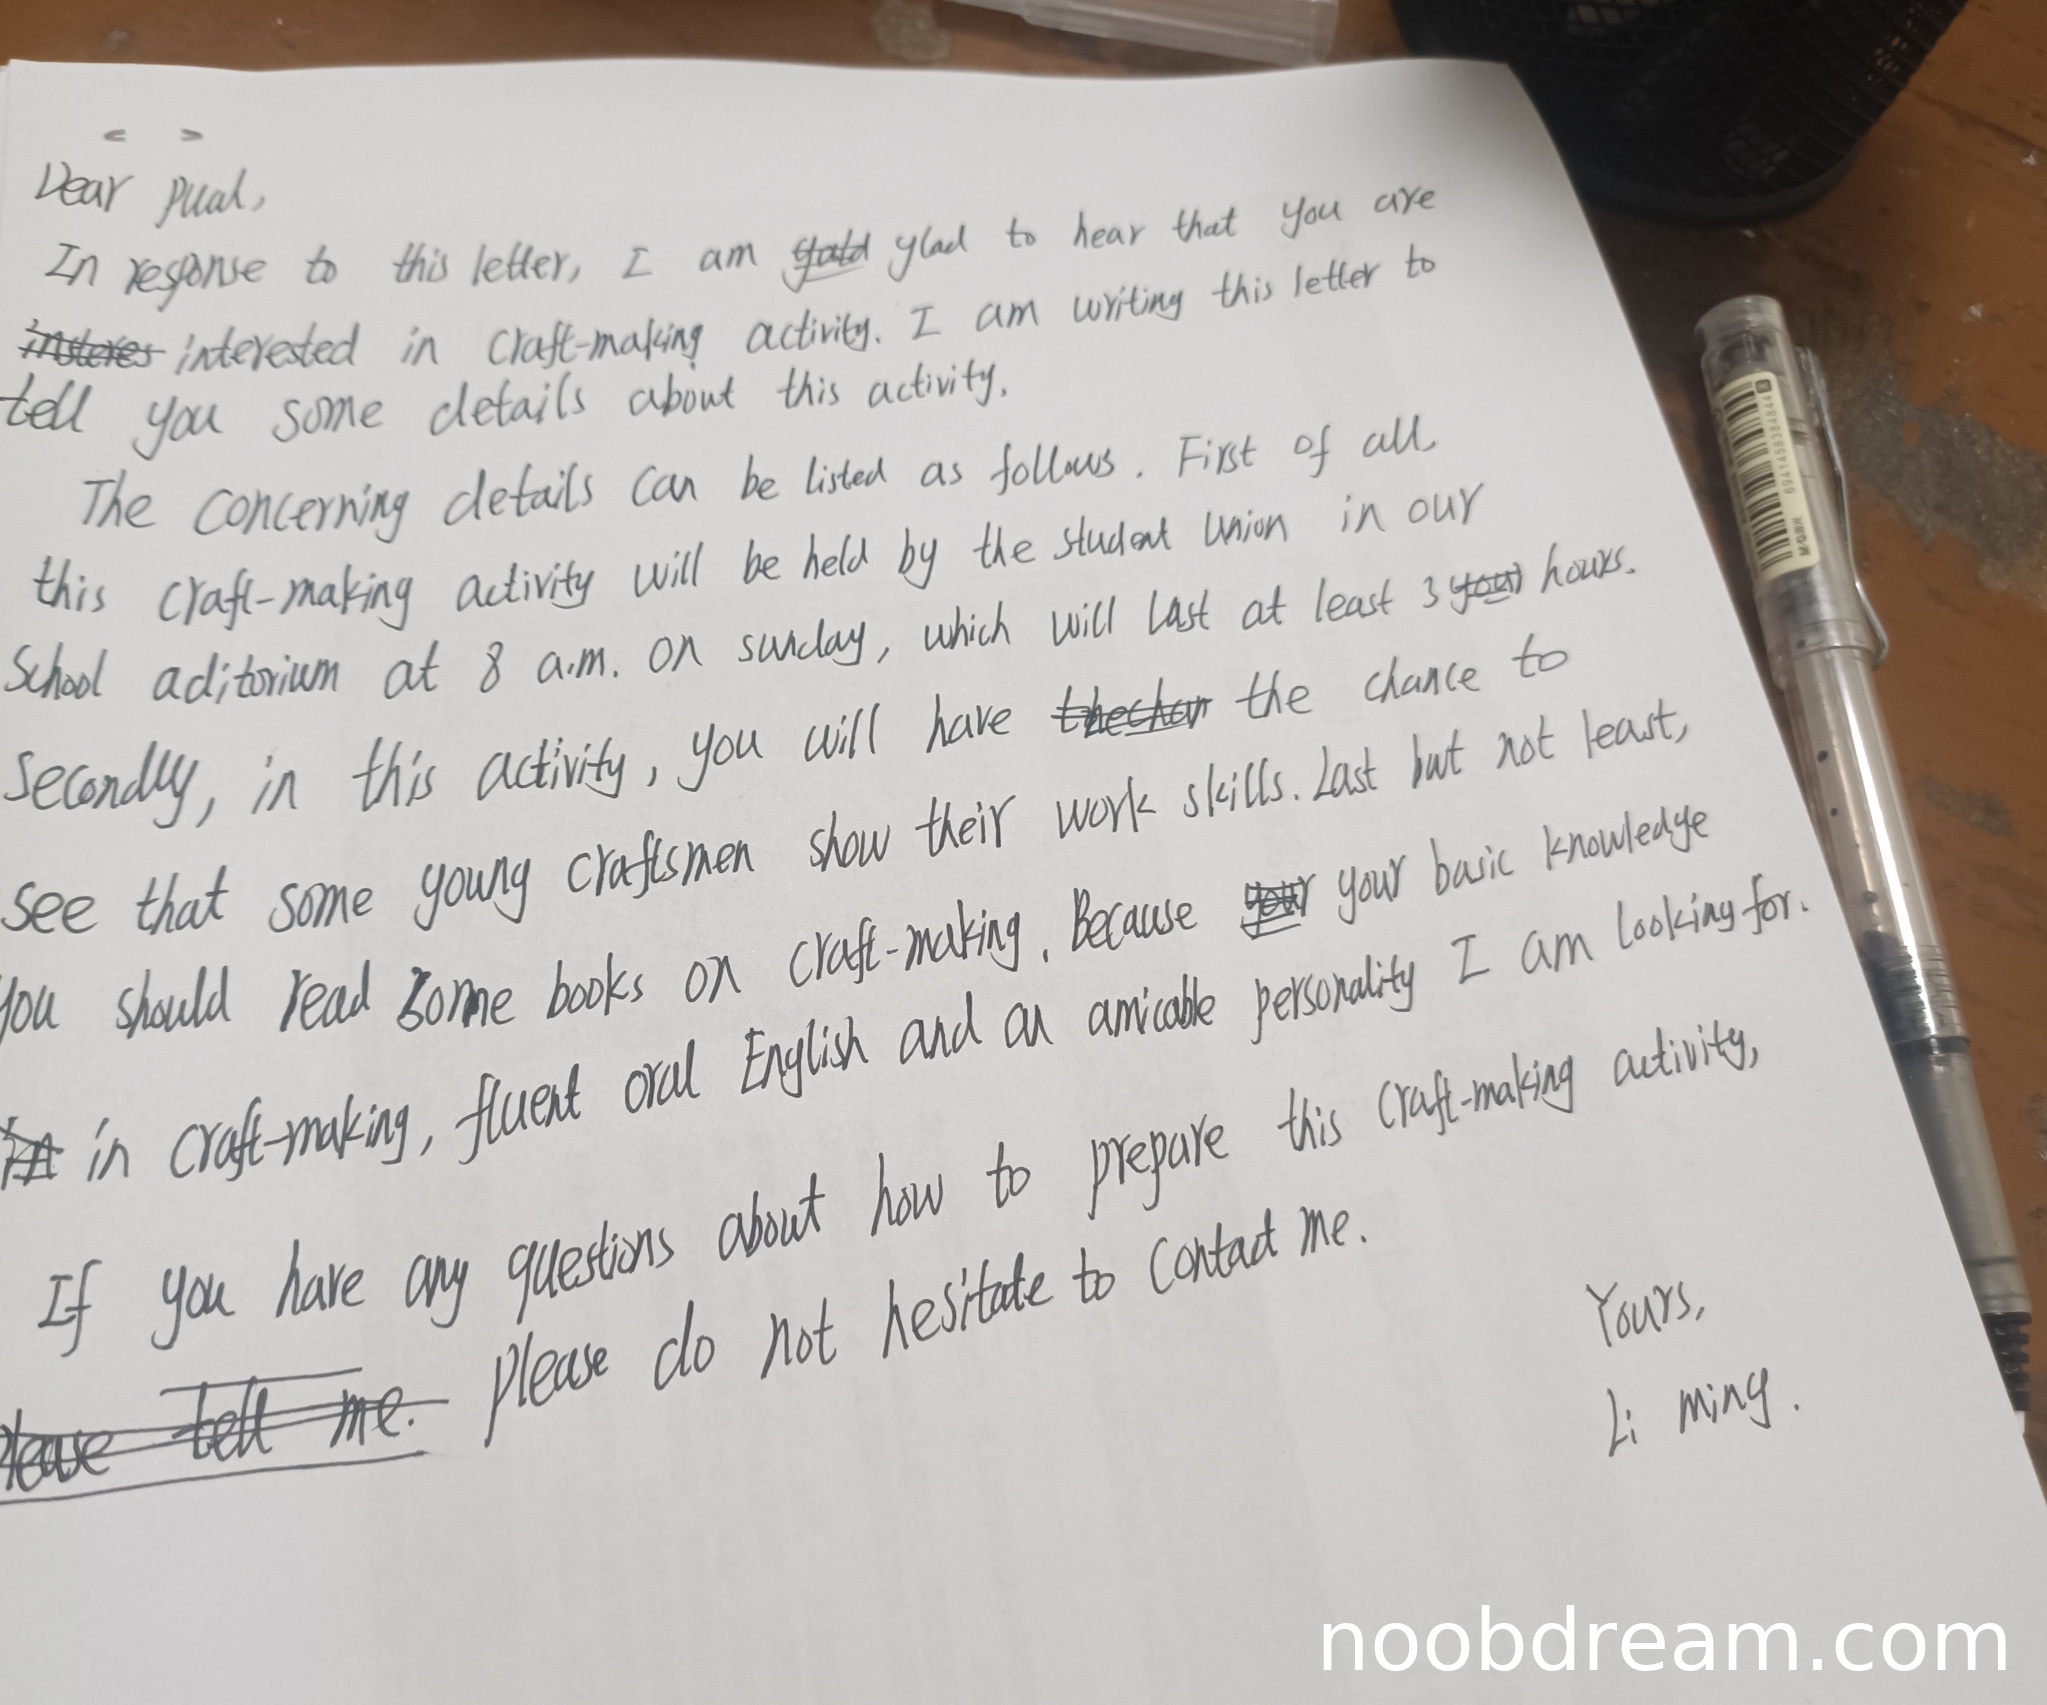 < >
Dear pual,
In response to this letter, I am glad to hear that you are
interested in craft-making activity. I am writing this letter to
tell you some details about this activity.
The concerning details can be listed as follows. First of all,
this craft-making activity will be held by the student union in our
school aditorium at 8 a.m. on sunday, which will last at least 3 hours.
secondly, in this activity, you will have the chance to
see that some young craftsmen show their work skills. Last but not least,
you should read some books on craft-making. Because your basic knowledge
in craft-making, fluent oral English and an amicable personality I am looking for.
If you have any questions about how to prepare this craft-making activity,
please tell me. please do not hesitate to contact me.
Yours,
Li ming.
MQBK
6941458384844
noobdream.com